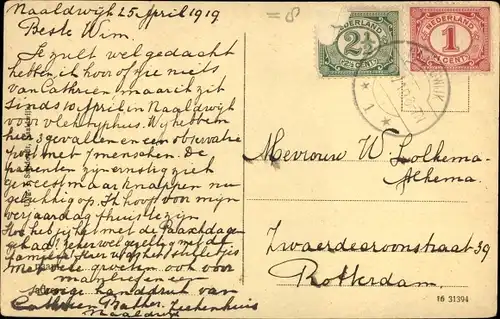 Naaldwijk 25 April 1919
Beste Wim.
Je zult wel gedacht
hebben, ik hoor of zie niets
van Cathrien, maar ik zit
sinds 10 April in Naaldwijk
voor vlektyphus. Wij hebben
hier 3 gevallen en een observatie
post met 7 menschen. De
patienten zijn ernstig ziek
geweest maar knappen nu
gelukkig op. Ik hoop voor mijn
verjaardag thuis te zijn
Hoe heb jij het met de Paaschdagen
gehad? Zeker wel gezellig met de
famielje
Met beste groeten ook voor
een handdruk van
Cathrien
Ziekenhuis
Naaldwijk
NEDERLAND
2½
CENT
NEDERLAND
1
CENT
Mevrouw W. Lolkema-
Alkema.
Zwaerdecroonstraat 39
Rotterdam.
16 31394